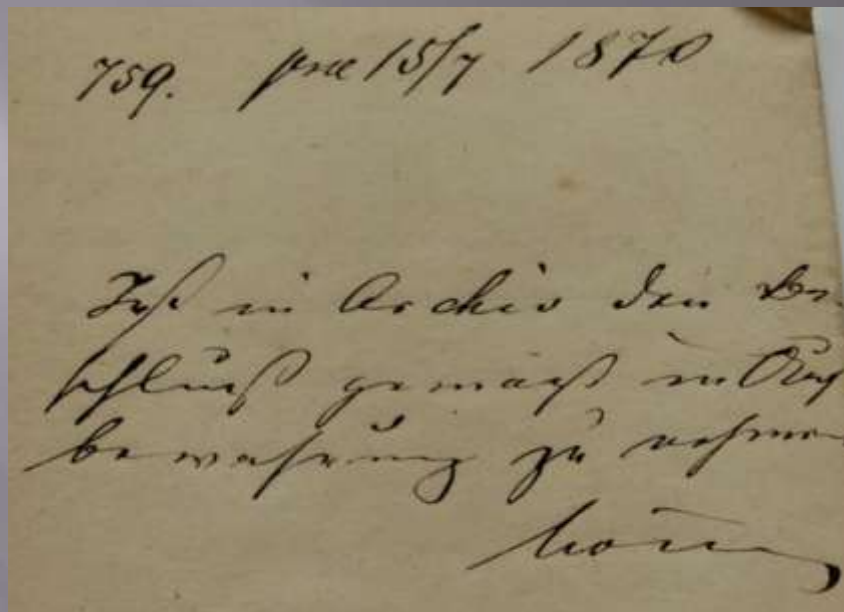 759. prae 15/7 1870
Ist in Archiv den Be-
schluß gemäß in Auf
bewahrung zu nehmen